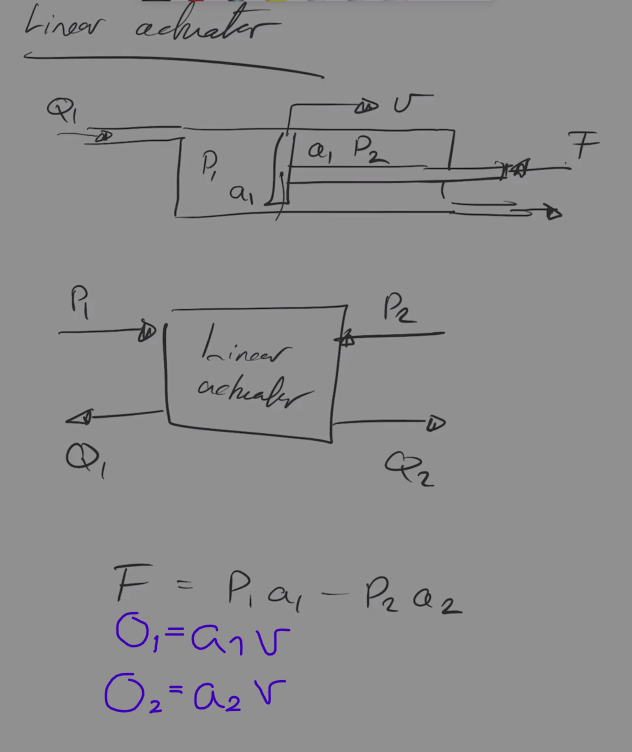 Linear actuator
Q₁
v
P₁
a₁
a₁ P₂
F
P₁
P₂
Linear
actuator
Q₁
Q₂
F = P₁ a₁ - P₂ a₂
O₁=a₁ v
O₂=a₂ v